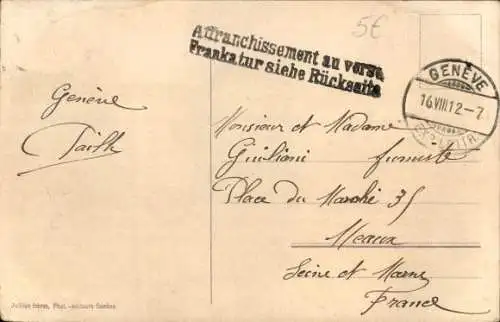 5€
Affranchissement au verso
Frankatur siehe Rückseite
GENÈVE
16.VIII.12-7
Genève
Monsieur et Madame
Giuliani fumiste
Place du Marché 35
Meaux
Seine et Marne
France
Jullien frères, Phot.-éditeurs Genève